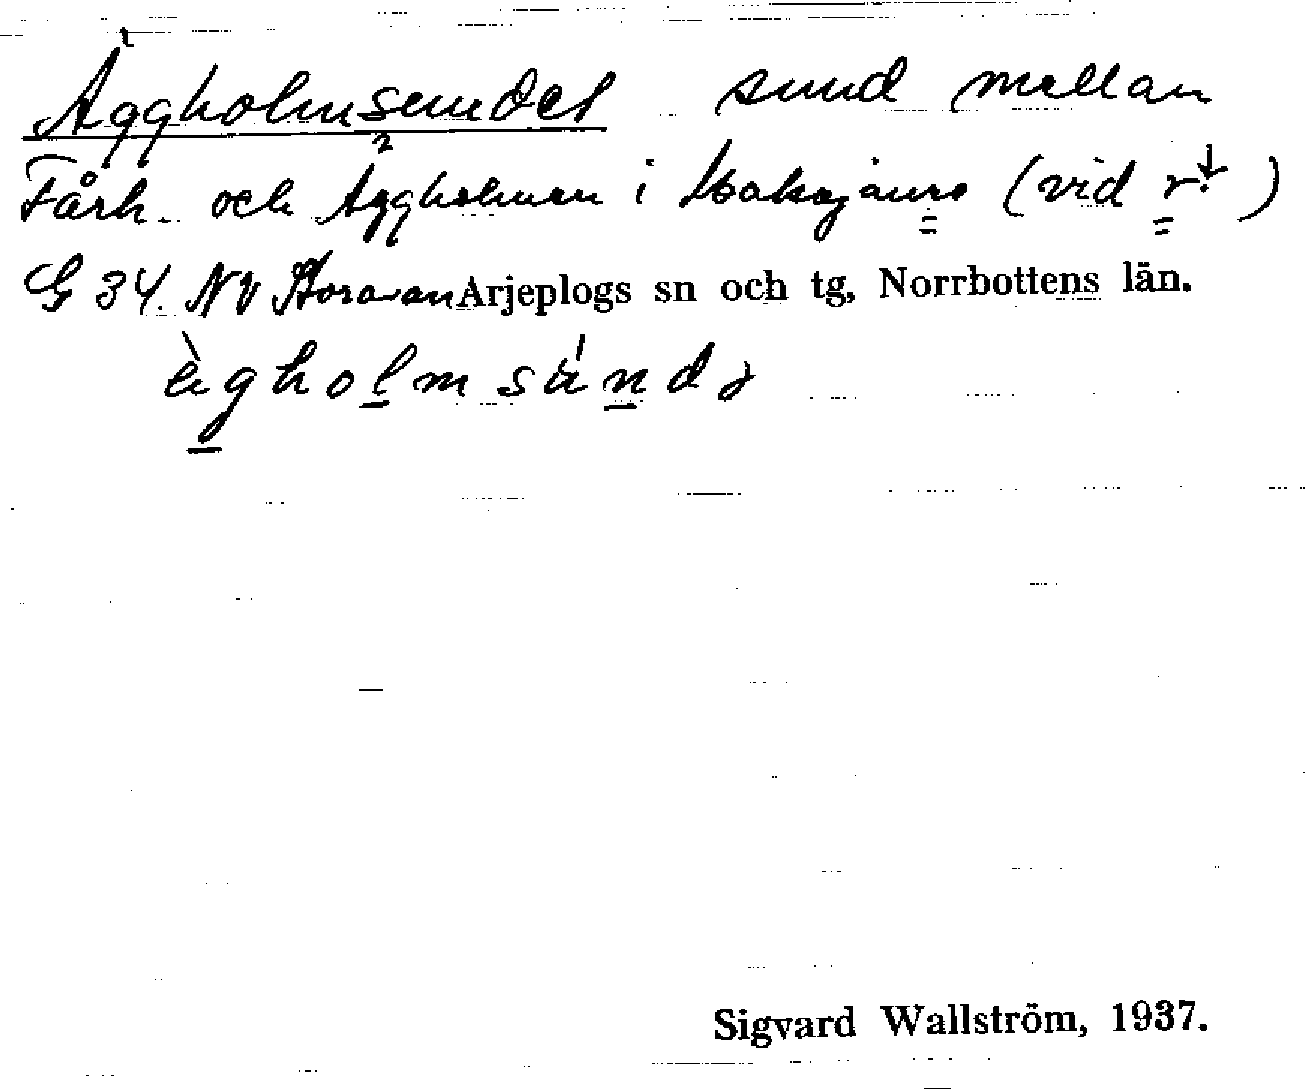 Äggholmsundet sund mellan
Fårh. och Äggholmen i (vid r)
G 34. NV Storavan Arjeplogs sn och tg, Norrbottens län.
ègholmsund
Sigvard Wallström, 1937.